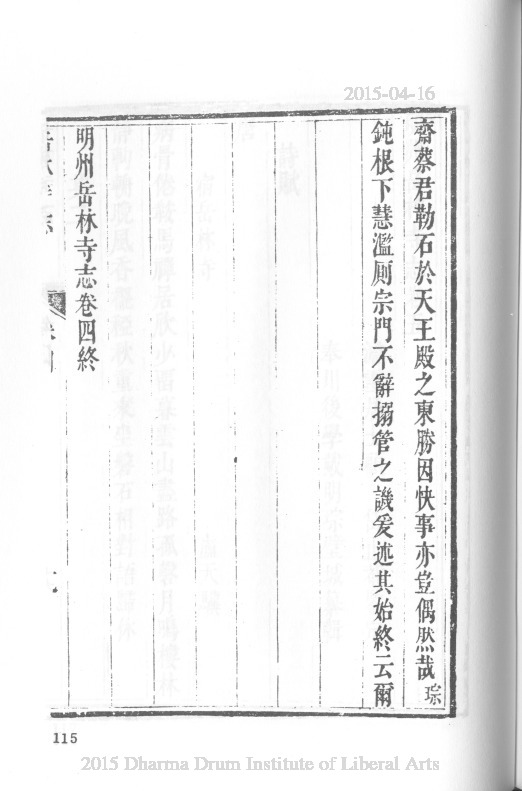 2015-04-16
齋蔡君勒石於天王殿之東勝因快事亦豈偶然哉琮
鈍根下慧濫厠宗門不辭搦管之譏爰述其始終云爾
明州岳林寺志卷四終
115
2015 Dharma Drum Institute of Liberal Arts